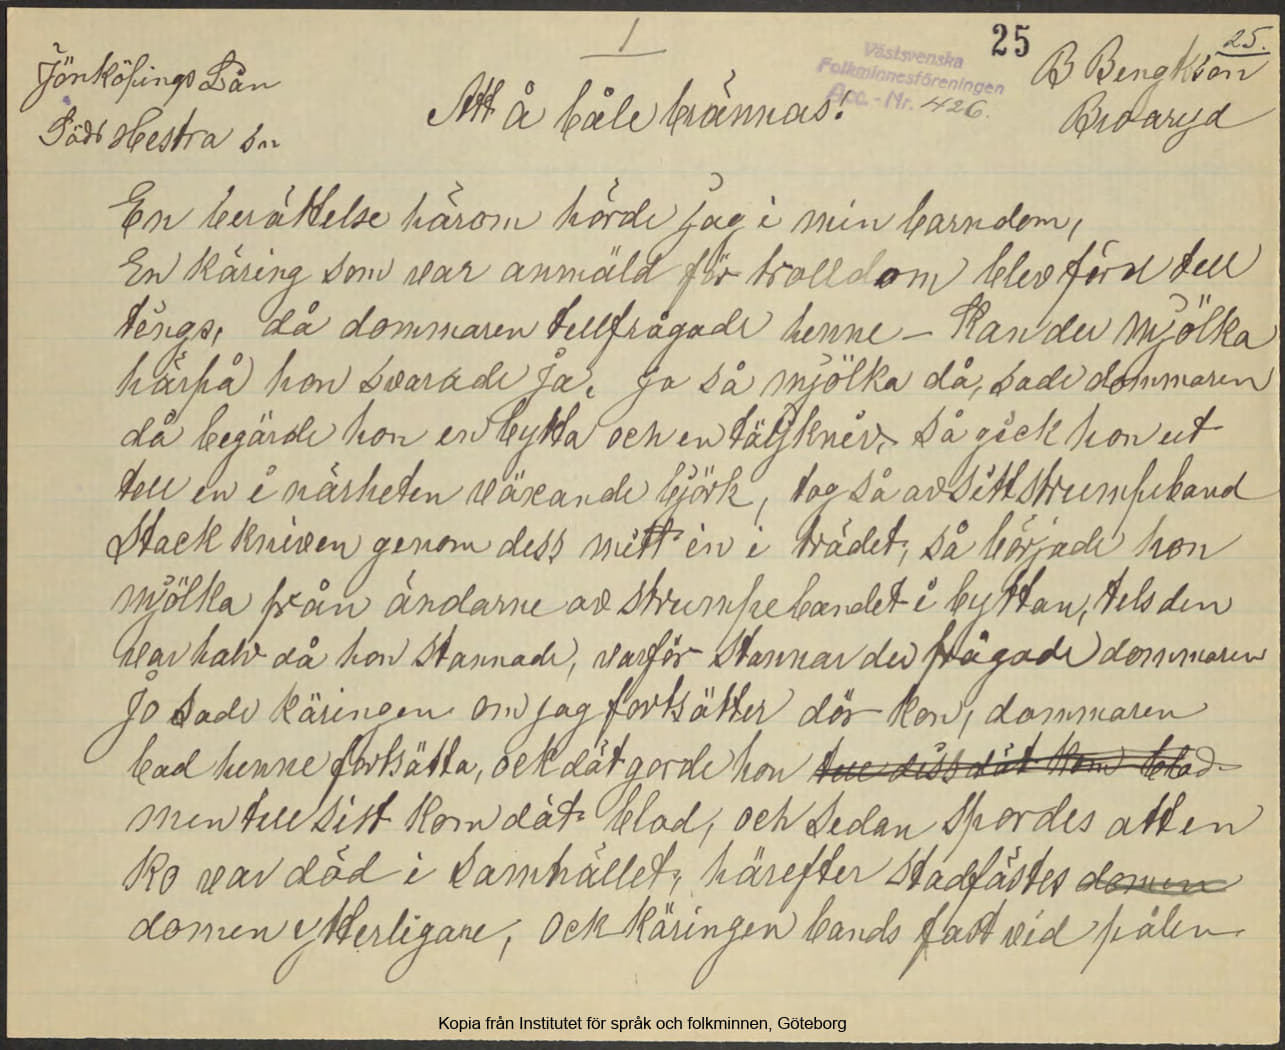 1
25
25.
Jönköpings Län
Västsvenska
Folkminnesföreningen
Acc.-Nr. 426.
B Bengtson
Broaryd
Söds Hestra sn
Att å båle brännas!
En berättelse härom hörde jag i min barndom,
En käring som var anmäld för trolldom blev förd till
tings, då dommaren tillfrågade henne – Kan du mjölka
härpå hon svarade ja, ja så mjölka då, sade dommaren
då begärde hon en bytta och en täljkniv, så gick hon ut
till en i närheten växande björk, tog så av sitt strumpeband
stack kniven genom dess mitt in i trädet, så började hon
mjölka från ändarne av strumpebandet i byttan, tels den
var halv då hon stannade, varför stannar du frågade dommaren
Jo sade käringen om jag fortsätter dör kon, dommaren
bad henne fortsätta, ock dät gorde hon till diss dät kom blod
men till sist kom dät blod, och sedan spordes att en
ko var död i samhället, härefter stadfästes domen
domen ytterligare, ock käringen bands fast vid pålen
Kopia från Institutet för språk och folkminnen, Göteborg